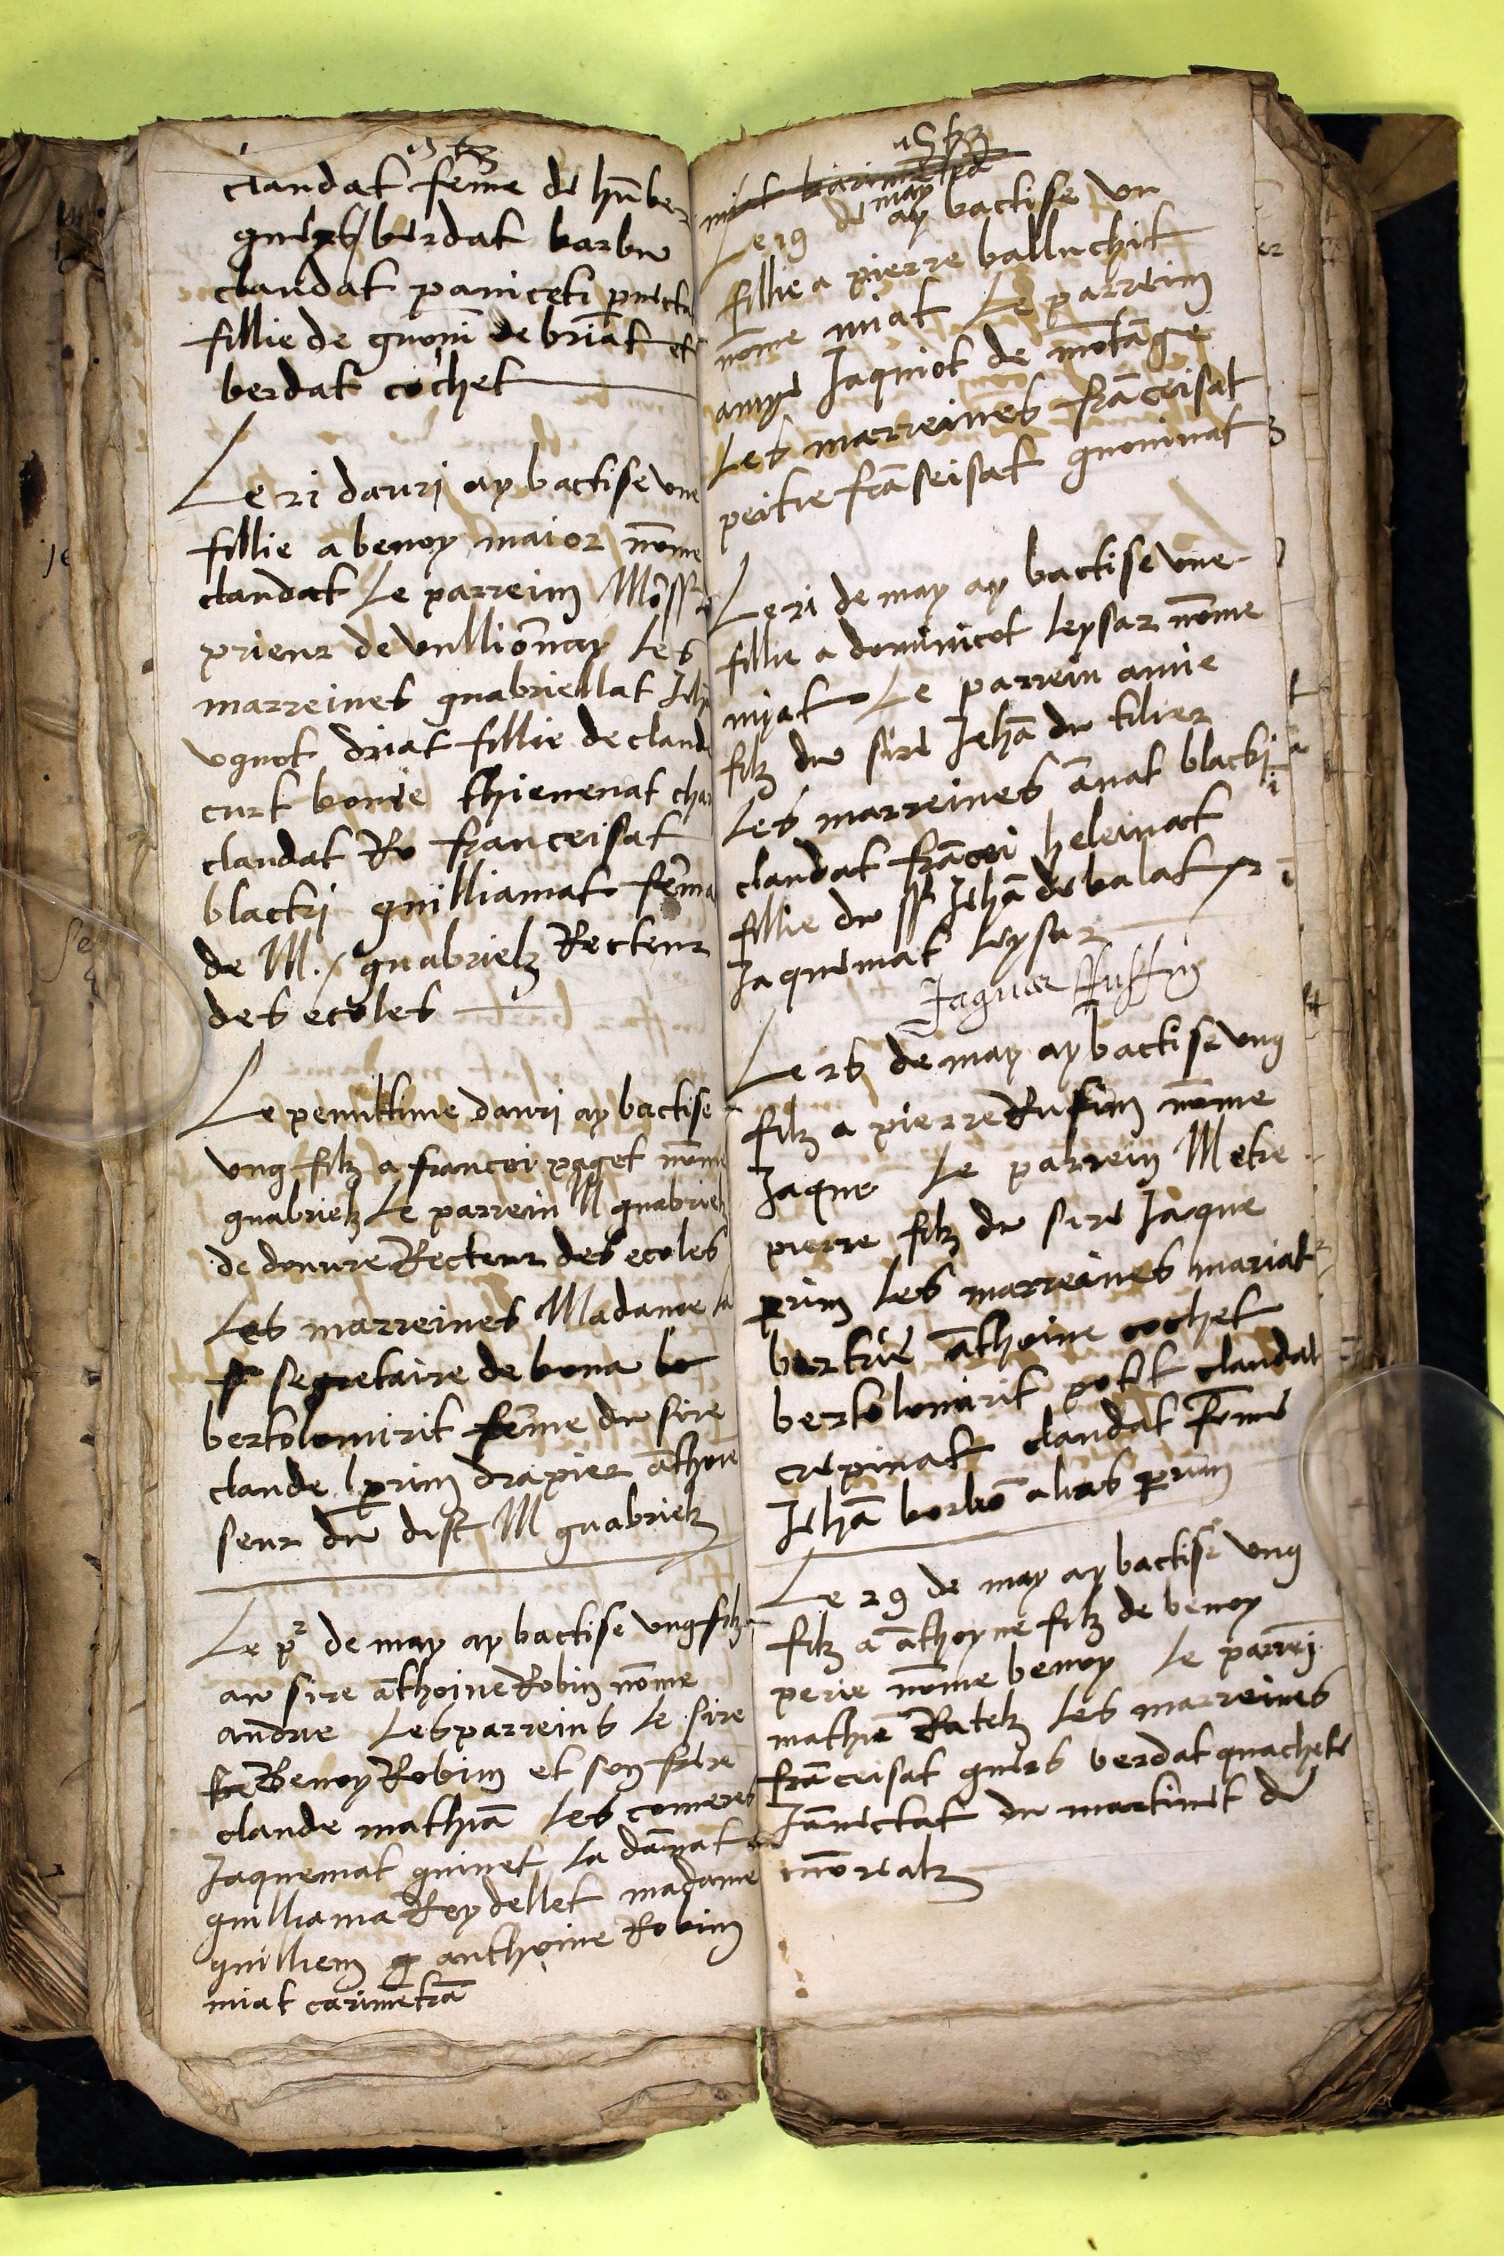 1543
claudat feme de hūber
guiers berdat barbu
claudat paniceti pnecta
fillie de guoni de briat et
berdat cochet
Le 21 dauri ay bactise une
fillie a benoy maior nōme
claudat Le parrein Mossr
prieur de vullionay Les
marreines guabriellat Jehā
ugnot driat fillie de claude
curt bonie thievenat char
claudat Ro franceisat
blacti guilliamat femā
de M. guabrielz Recteur
des ecoles
Le penultime dauri ay bactise
ung filz a francoi paget nōme
guabrielz Le parrein M guabrielz
de douvre Recteur des ecoles
Les marreines Madame la
segretaire de bona
bertolomirit feme du sire
claude prin drapier āthoine
seur du dist M guabrielz
Le pr de may ay bactise ung filz
au sire āthoine Robin nōme
andrie Les parreins Le sire
Benoy Robin et son frere
claude mathiā Les comeres
Jaquemat guinet La dāmat
guilliama Reydellet madame
guilliem anthoine Robin
miat carimētrā
1543
miat
Le 19 de may ay bactise un
fillie a pierre balluchit
nōme miat Le parrein
amye Jaquiot de mōtāge
Les marreines frāceisat
peitre frāseisat guoninat
Le 21 de may ay bactise une
fillie a dominicot Leysar nōme
myat Le parrein amie
filz du sire Jehā du tilier
Les marreines ānat blacti
claudat frācoi heleinat
fillie du sr Jehā de balat
Jaquemat Leysar
Jaques Ruffin
Le 26 de may ay bactise ung
filz a pierre Rufin nōme
Jaque Le parrein Metre
pierre filz du sire Jaque
prin Les marreines mariat
bertie āthoine cochet
bertolomirit potit claudat
crepinat claudat feme
Jehā borbō alias prin
Le 29 de may ay bactise ung
filz a āthoyne filz de benoy
perie nōme benoy Le parrei
mathie Ratelz Les marreines
frāceisat guiers berdat quacheti
Jānectat du martinet de